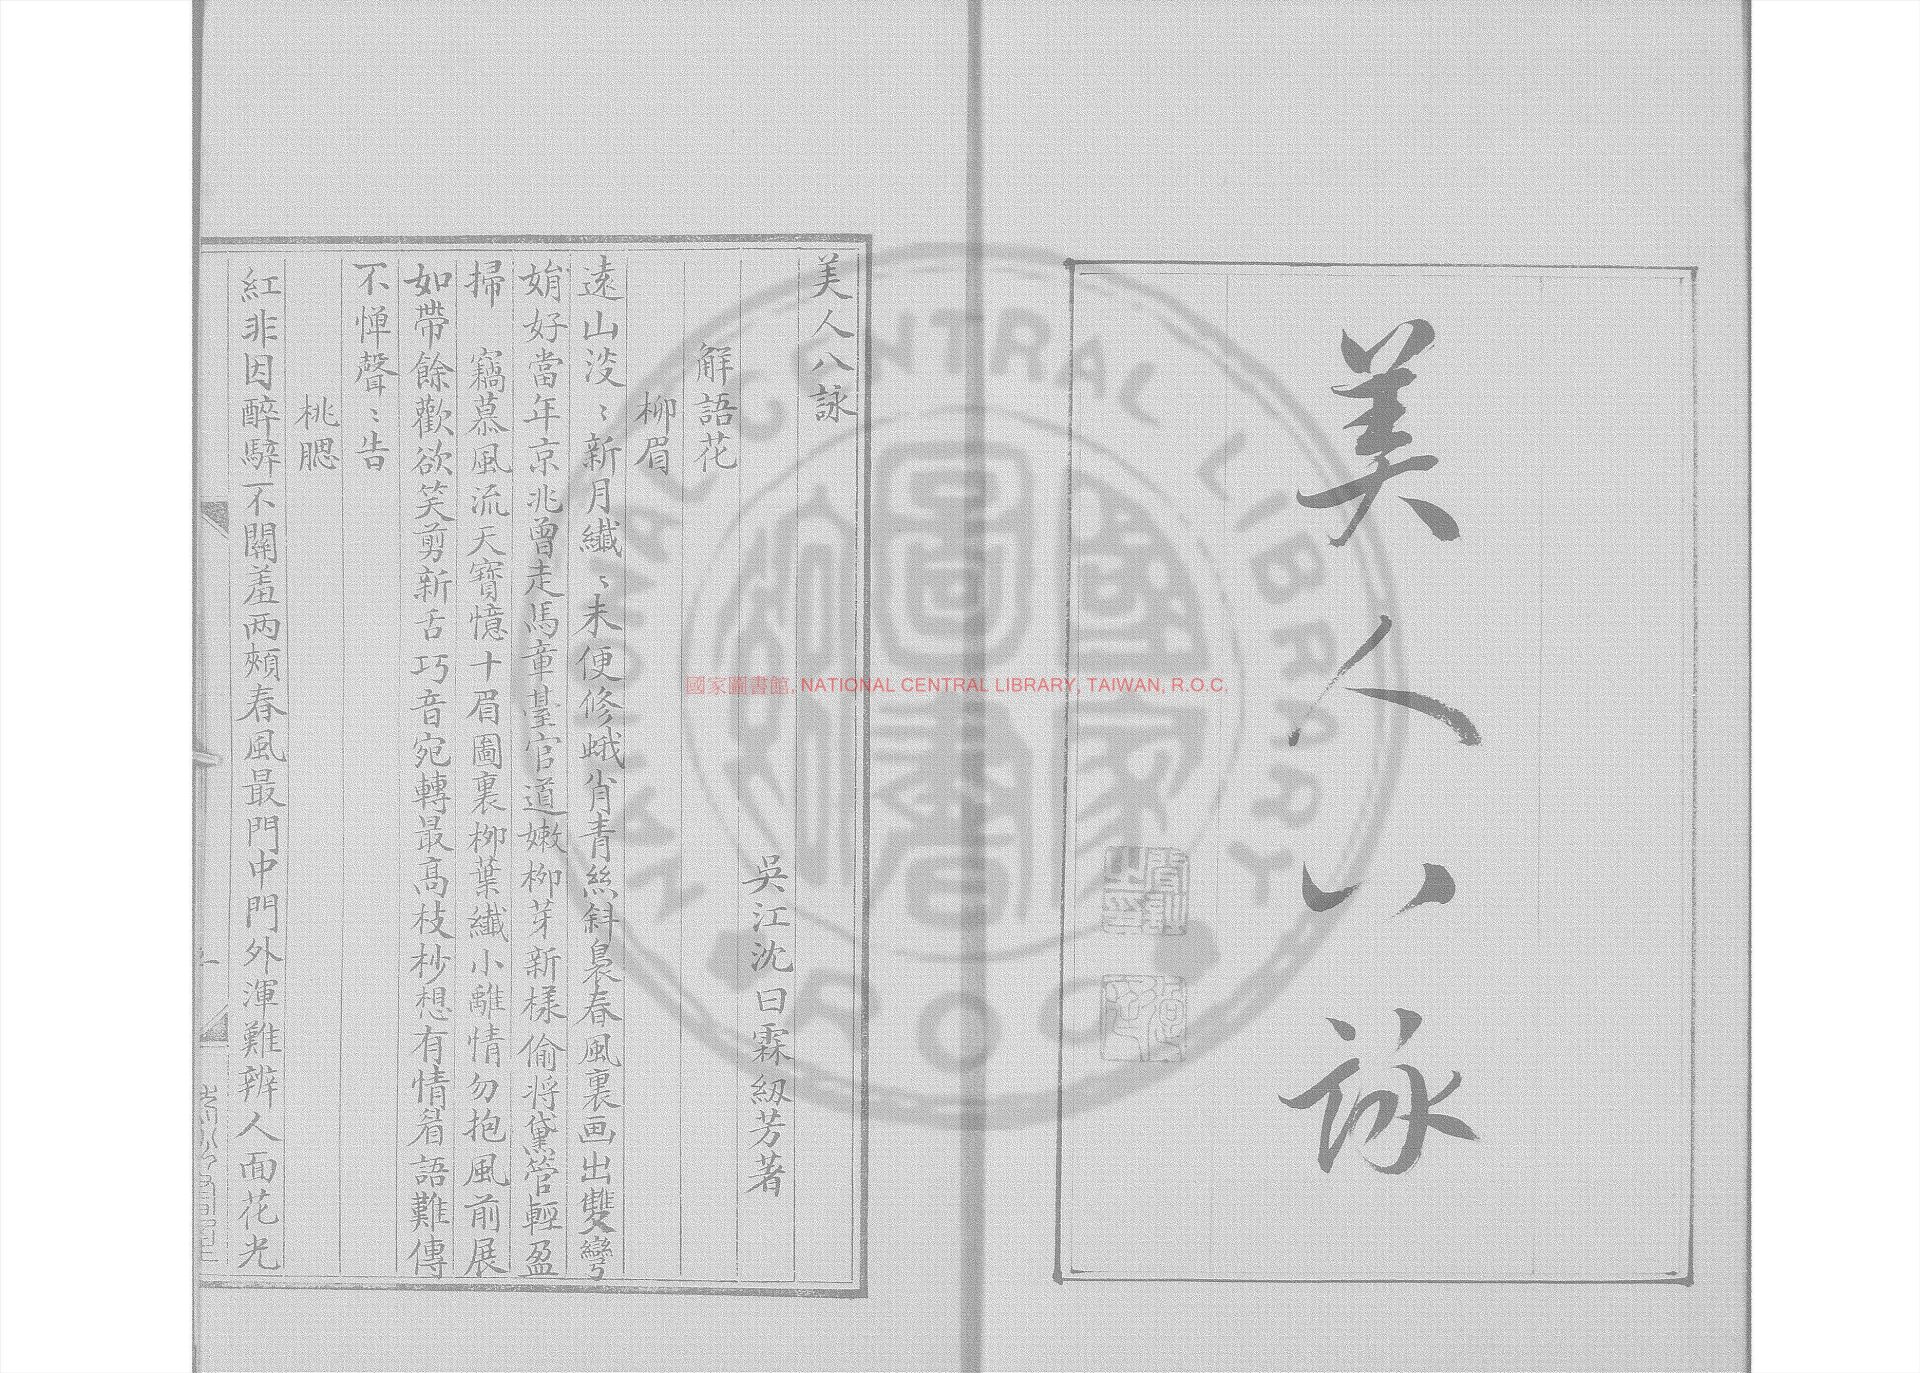 美人八詠
美人八詠
吳江沈曰霖紉芳著
解語花
柳眉
遠山淡〻新月纖〻未便修蛾肖青絲斜裊春風裏画出雙彎
媌好當年京兆曾走馬章臺官道嫩柳芽新樣偷將黛管輕盈
掃　竊慕風流天寶憶十眉圖裏柳葉纖小離情勿抱風前展
如帶餘歡欲笑剪新舌巧音宛轉最高枝杪想有情眉語難傳
不憚聲〻告
桃腮
紅非因醉騂不關羞兩頰春風最門中門外渾難辨人面花光
一
國家圖書館, NATIONAL CENTRAL LIBRARY, TAIWAN, R.O.C.
NATIONAL CENTRAL LIBRARY
國家圖書館
R O C